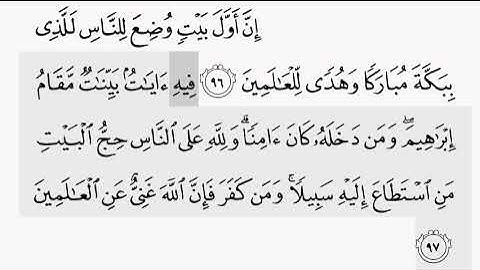 إِنَّ أَوَّلَ بَيْتٍ وُضِعَ لِلنَّاسِ لَلَّذِى
بِبَكَّةَ مُبَارَكًا وَهُدًى لِّلْعَالَمِينَ ٩٦ فِيهِ ءَايَاتٌ بَيِّنَاتٌ مَّقَامُ
إِبْرَاهِيمَ ۖ وَمَن دَخَلَهُۥ كَانَ ءَامِنًا ۗ وَلِلَّهِ عَلَى ٱلنَّاسِ حِجُّ ٱلْبَيْتِ
مَنِ ٱسْتَطَاعَ إِلَيْهِ سَبِيلًا ۚ وَمَن كَفَرَ فَإِنَّ ٱللَّهَ غَنِىٌّ عَنِ ٱلْعَالَمِينَ
٩٧